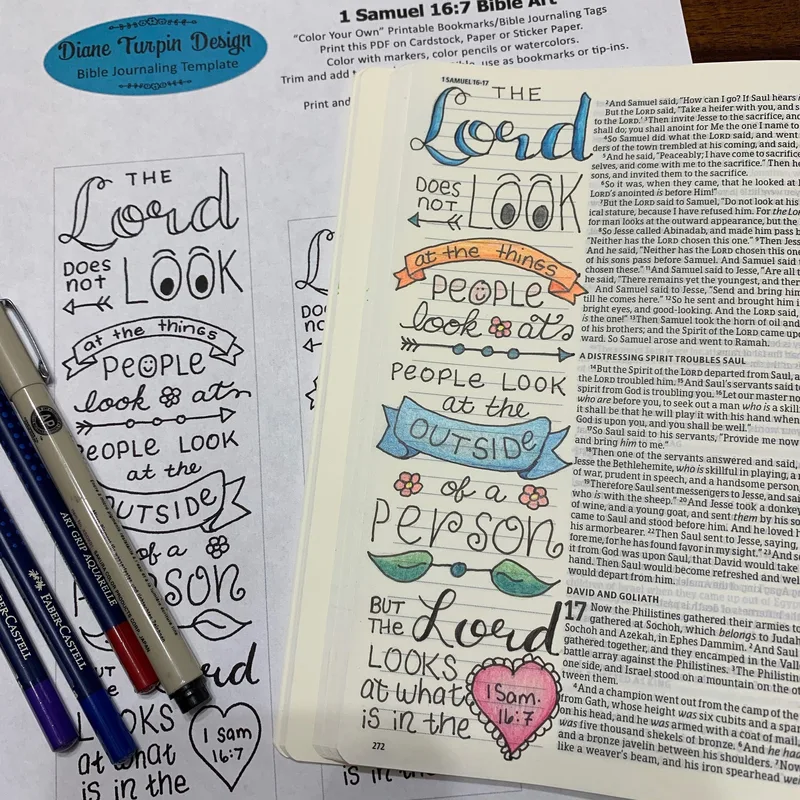 Diane Turpin Design
Bible Journaling Template
1 Samuel 16:7 Bible Art
"Color Your Own" Printable Bookmarks/Bible Journaling Tags
Print this PDF on Cardstock, Paper or Sticker Paper.
Color with markers, color pencils or watercolors.
Trim and add
use as bookmarks or tip-ins.
Print and
THE
Lord
Does
not
LOOK
at the things
PEOPLE
look at
PEOPLE LOOK
at the
OUTSIDE
of a
LOOKS
at what
is in the
1 Sam
16:7
ART GRIP AQUARELLE
FABER-CASTELL
1 SAMUEL 16-17
THE
Lord
DOES
NOT
LOOK
at the things
PEOPLE
look at
PEOPLE LOOK
at the
OUTSIDE
of a
Person
BUT
THE
Lord
LOOKS
at what
is in the
1 Sam.
16:7
272
2And Samuel said, "How can I go? If Saul hears
But the LORD said, "Take a heifer with you, and
to the LORD.' 3Then invite Jesse to the sacrifice, and
shall do; you shall anoint for Me the one I name to
4So Samuel did what the LORD said, and went
ders of the town trembled at his coming, and said,
5And he said, "Peaceably; I have come to sacrifice
selves, and come with me to the sacrifice." Then he
sons, and invited them to the sacrifice.
6So it was, when they came, that he looked at
LORD's anointed is before Him!"
7But the LORD said to Samuel, "Do not look at his
ical stature, because I have refused him. For the
for man looks at the outward appearance, but the
8So Jesse called Abinadab, and made him pass
"Neither has the LORD chosen this one." 9Then
And he said, "Neither has the LORD chosen this one."
of his sons pass before Samuel. And Samuel said
chosen these." 11And Samuel said to Jesse, "Are all
he said, "There remains yet the youngest, and there
And Samuel said to Jesse, "Send and bring him
till he comes here." 12So he sent and brought him
bright eyes, and good-looking. And the LORD said,
is the one!" 13Then Samuel took the horn of oil and
of his brothers; and the Spirit of the LORD came
So Samuel arose and went to Ramah.
A DISTRESSING SPIRIT TROUBLES SAUL
14But the Spirit of the LORD departed from Saul,
the LORD troubled him. 15And Saul's servants said
spirit from God is troubling you. 16Let our master
who are before you, to seek out a man who is a
it shall be that he will play it with his hand when
God is upon you, and you shall be well."
17So Saul said to his servants, "Provide me now
and bring him to me."
18Then one of the servants answered and said,
Jesse the Bethlehemite, who is skillful in playing, a
of war, prudent in speech, and a handsome person
19Therefore Saul sent messengers to Jesse, and
who is with the sheep." 20And Jesse took a donkey
of wine, and a young goat, and sent them by his
came to Saul and stood before him. And he loved
his armorbearer. 22Then Saul sent to Jesse, saying,
fore me, for he has found favor in my sight." 23And
it from God was upon Saul, that David would take
hand. Then Saul would become refreshed and well
would depart from him.
DAVID AND GOLIATH
17 Now the Philistines gathered their armies to
gathered at Sochoh, which belongs to Judah
Sochoh and Azekah, in Ephes Dammim. 2And Saul
gathered together, and they encamped in the
battle array against the Philistines. 3The
one side, and Israel stood on a mountain on the
tween them.
4And a champion went out from the camp of the
from Gath, whose height was six cubits and a
on his head, and he was armed with a coat of
was five thousand shekels of bronze. 6And he had
and a bronze javelin between his shoulders. 7Now
like a weaver's beam, and his iron spearhead